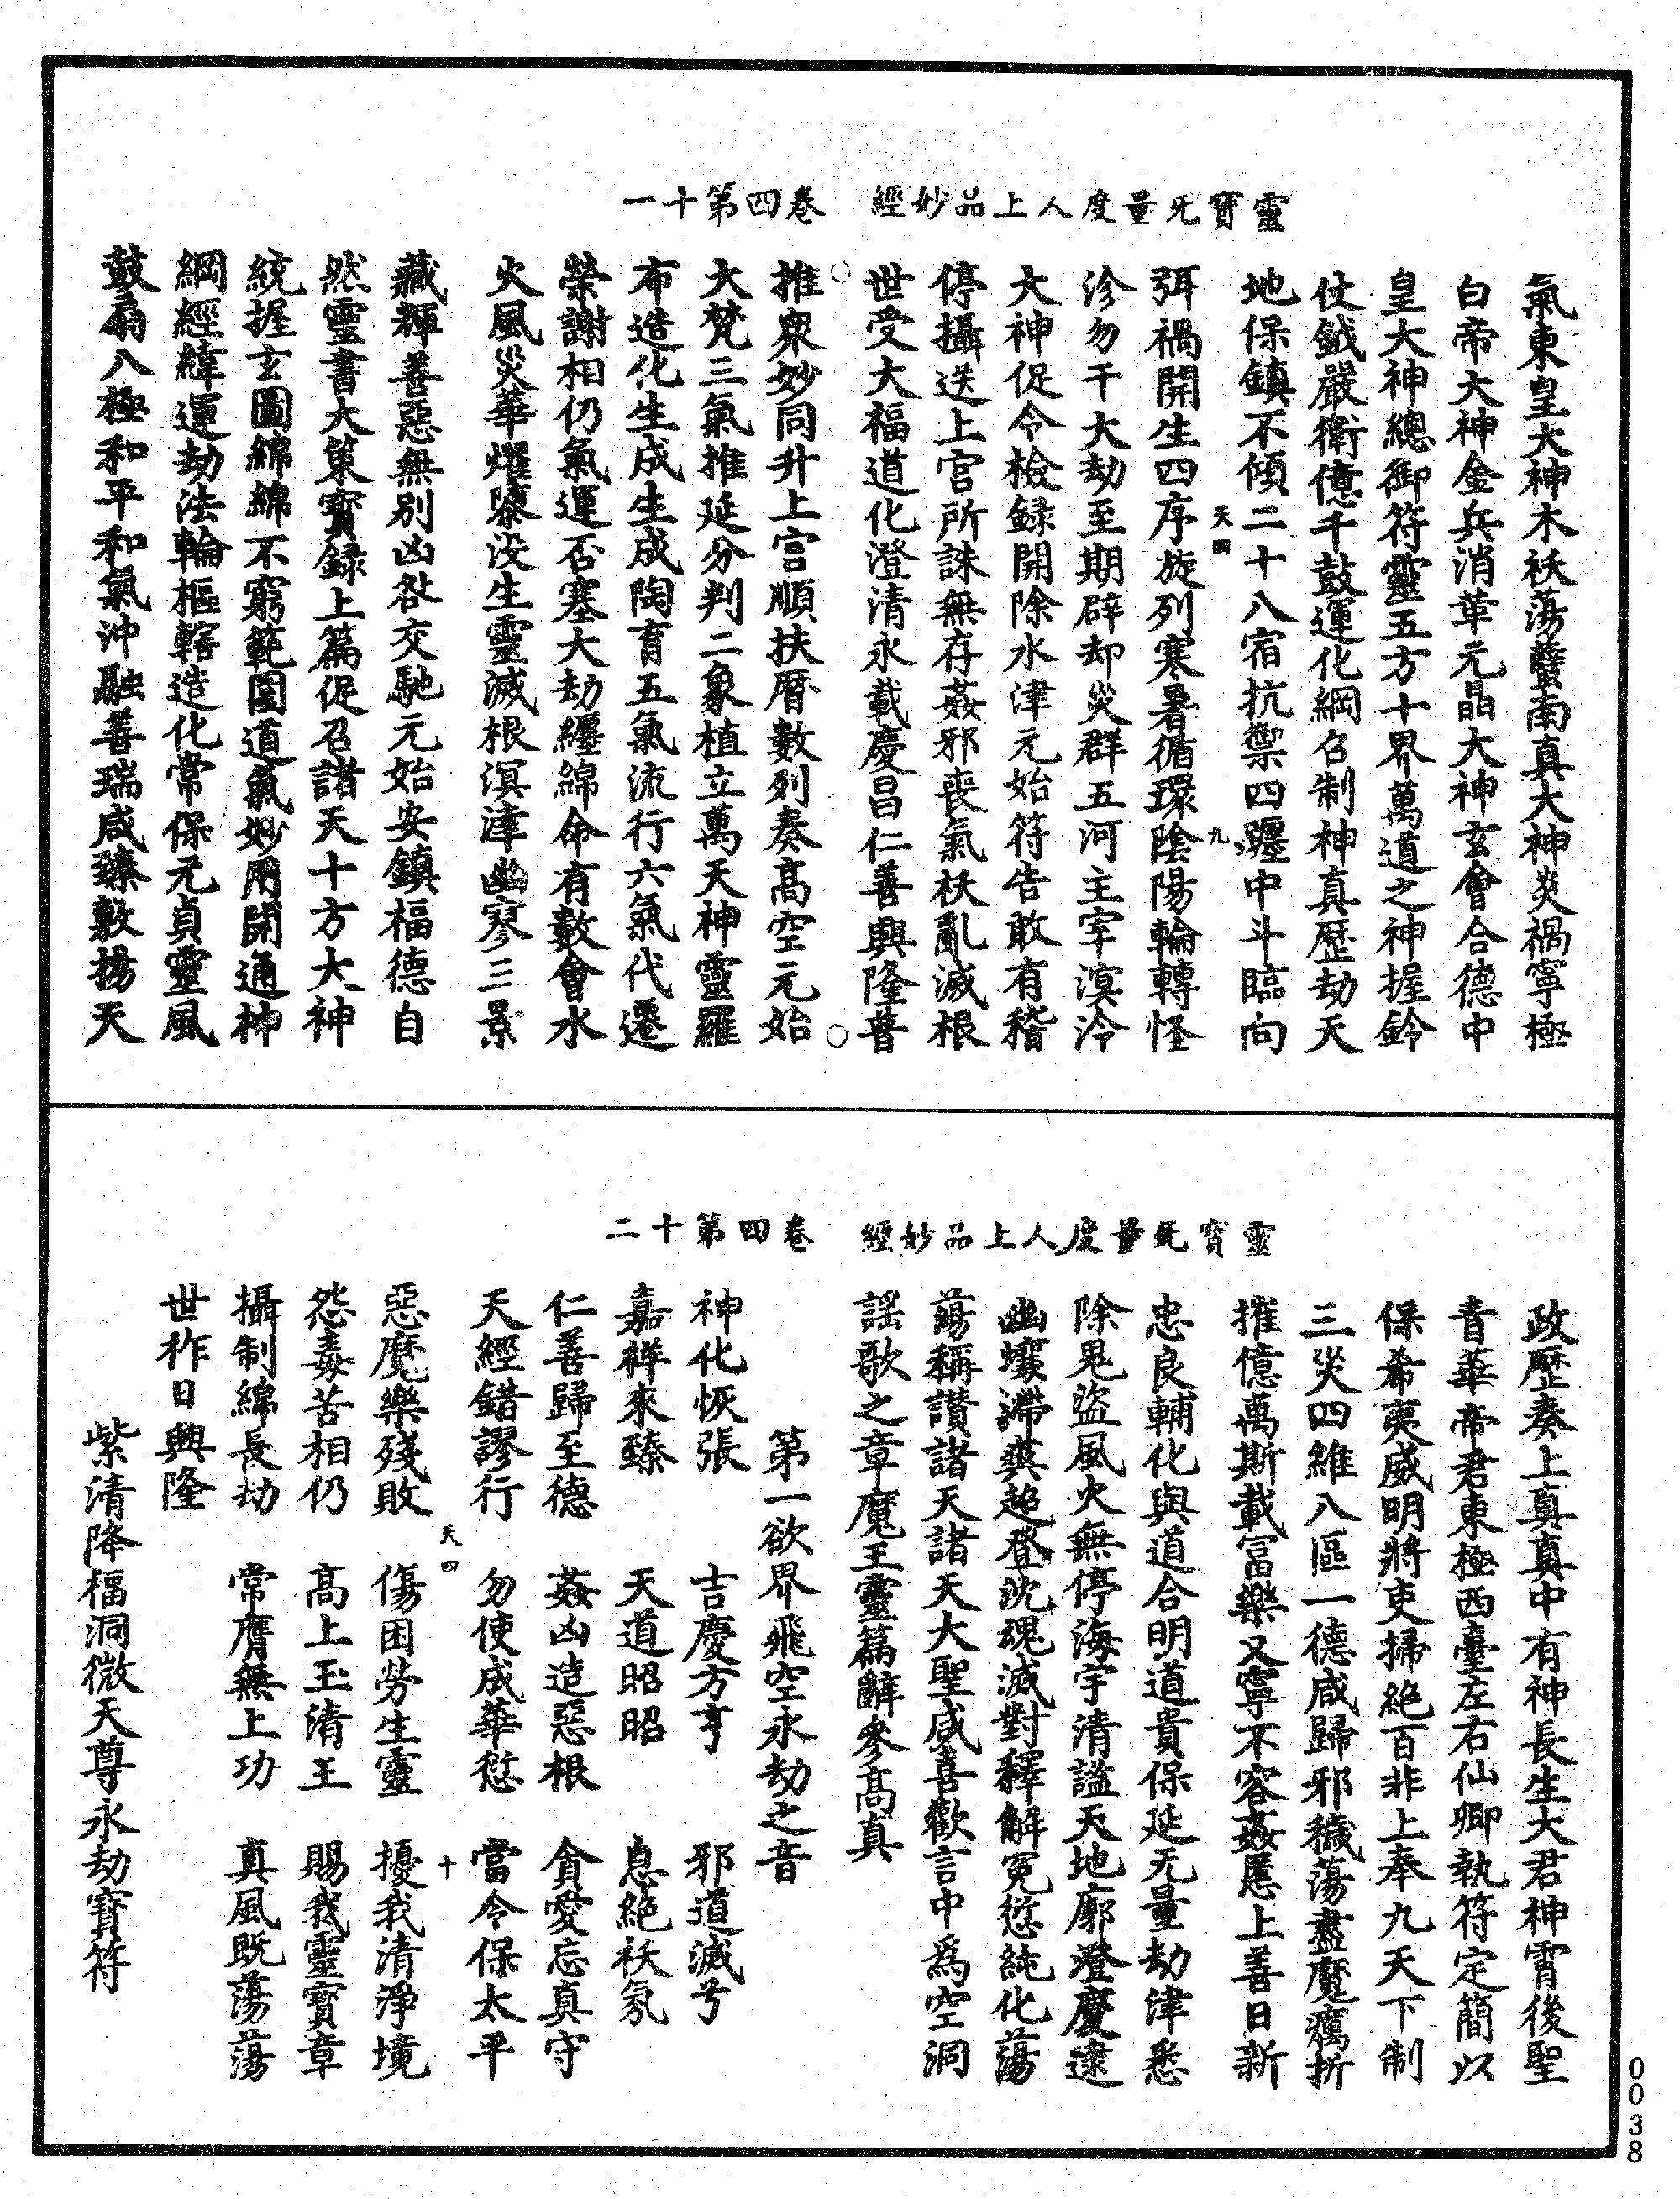 靈寶旡量度人上品妙經　卷四第十一
氣東皇大神木袄蕩虀南真大神炎禍寧極
白帝大神金兵消革元晶大神玄會合德中
皇大神總御符靈五方十界萬道之神握鈐
仗鉞嚴衛億千鼓運化綱召制神真歷劫天
地保鎮不傾二十八宿抗禦四躔中斗臨向
天四　九
弭禍開生四序旋列寒暑循環陰陽輪轉怪
沴勿干大劫至期辟却災群五河主宰溟泠
大神促令檢録開除水津元始符告敢有稽
停攝送上宫所誅無存姦邪喪氣袄亂滅根
世受大福道化澄清永載慶昌仁善興隆普
推衆妙同升上宫順扶曆數列奏高空元始
大梵三氣推延分判二象植立萬天神靈羅
布造化生成生成陶育五氣流行六氣代遷
榮謝相仍氣運否塞大劫纏綿命有數會水
火風災華燿隳没生靈滅根溟涬幽寥三景
藏輝善惡無別凶咎交馳元始安鎮福德自
然靈書大策寶録上篇促召諸天十方大神
統握玄圖綿綿不窮範圍道氣妙用開通神
綱經緯運劫法輪樞轄造化常保元貞靈風
鼓扇八極和平和氣沖融善瑞咸臻敷揚天
靈寶旡量度人上品妙經　卷四第十二
政歷奏上真真中有神長生大君神霄後聖
青華帝君東極西臺左右仙卿執符定簡以
保希夷威明將吏掃絶百非上奉九天下制
三災四維八區一德咸歸邪穢蕩盡魔癘折
摧億萬斯載富樂乂寧不容姦慝上善日新
忠良輔化與道合明道貴保延无量劫津悉
除鬼盜風火無停海宇清謐天地廓澄慶逮
幽壤滯爽超登沈魂滅對釋解冤愆純化蕩
蕩稱讚諸天諸天大聖咸喜歡言中爲空洞
謡歌之章魔王靈篇辭參高真
第一欲界飛空永劫之音
神化恢張　吉慶方亨　邪道滅兮
嘉祥來臻　天道昭昭　息絶袄氛
仁善歸至德　姦凶造惡根　貪愛忘真守
天經錯謬行　勿使成華愆　當令保太平
天四　十
惡魔樂殘敗　傷困勞生靈　擾我清淨境
怨毒苦相仍　高上玉清王　賜我靈寶章
攝制綿長劫　常膺無上功　真風既蕩蕩
世祚日興隆
紫清降福洞微天尊永劫寶符
0038